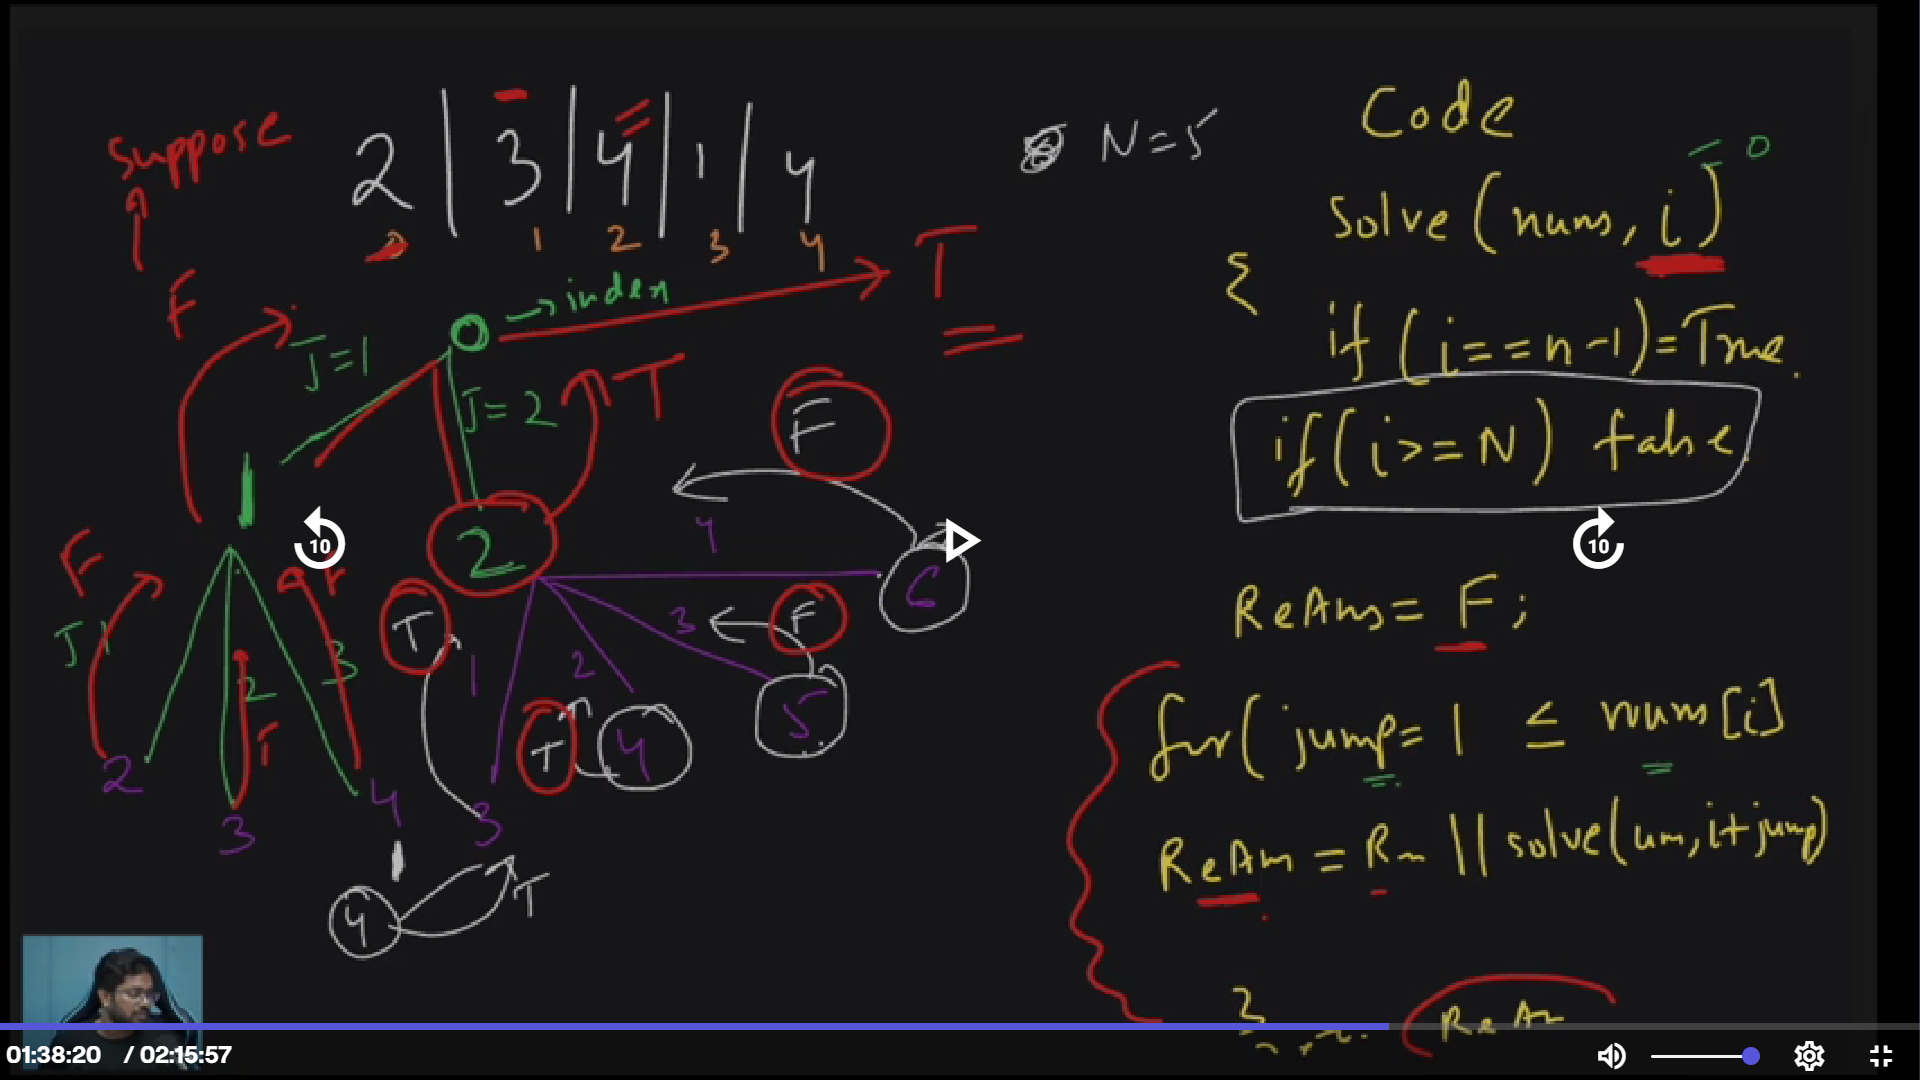 Suppose
2 | 3 | 4 | 1 | 4
N=5
0 1 2 3 4
F
→ index
T
J=1
J=2
T
1
2
F
4
6
F
J1
2
3
F
T
T
1
2
3
F
5
T
4
2
3
4
3
1
4
T
Code
0
Solve (nums, i)
{
if (i==n-1)=True.
if(i>=N) false
ReAns= F;
for( jump= 1 ≤ nums[i]
ReAns = R~ || solve(um, i+jump)
ReAn
10
10
01:38:20 / 02:15:57